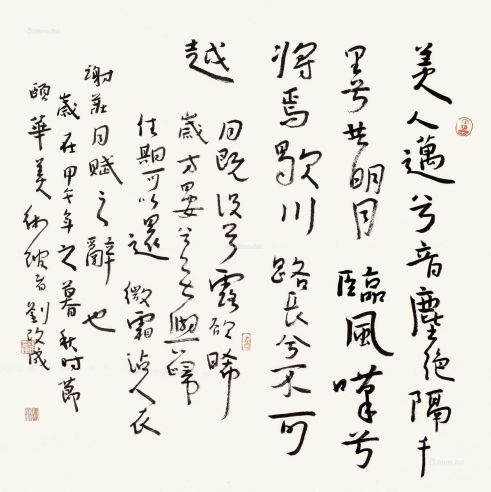 美人邁兮音塵絕隔千
里兮共明月臨風嘆兮
將焉歇川路長兮不可
越
月既沒兮露欲晞
歲方晏兮無與歸
佳期可以還微霜沾人衣
謝莊月賦之辭也
歲在甲午年之暮秋時節
頤華美術館劉改成